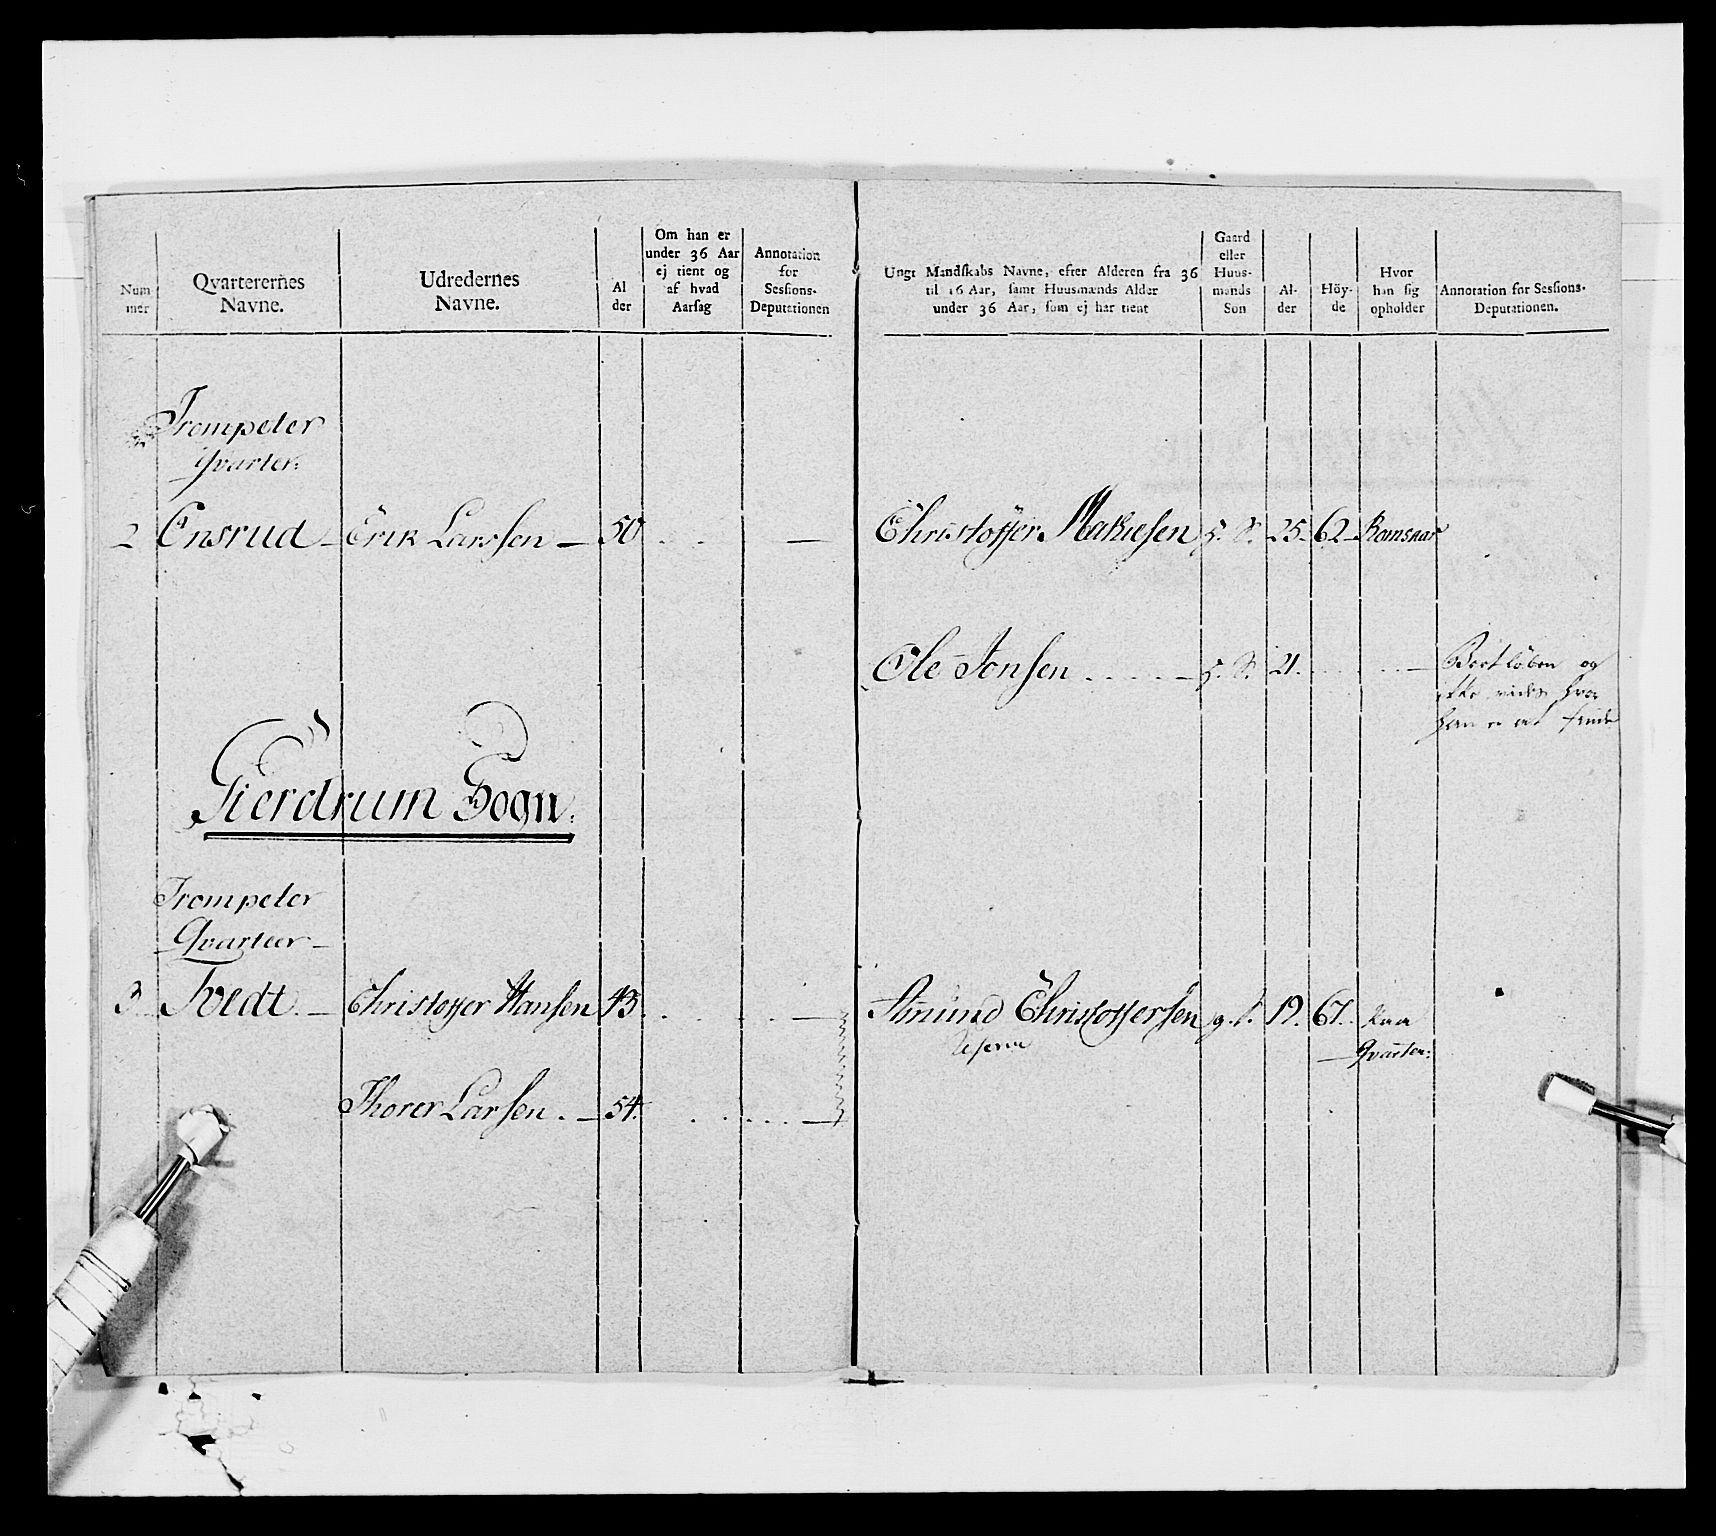 Num
mer
Qvarterernes
Navne.
Udredernes
Navne.
Al
der
Om han er
under 36 Aar
ej tient og
af hvad
Aarsag
Annotation
for
Sessions-
Deputationen
Ungt Mandskabs Navne, efter Alderen fra 36
til 16 Aar, samt Huusmænds Alder
under 36 Aar, som ej har tient
Gaard
eller
Huus-
mands
Søn
Al-
der
Höy-
de
Hvor
han sig
opholder
Annotation for Sessions-
Deputationen.
Trompeter
Qvarter.
2 Ensrud Erik Larssen 50 Christoffer Mathiesen h. S. 25 62 Romsaas
Ole Jonsen h. S. 21. Bortløben og
ikke vides hvor
han er at finde
Gierdrum Sogn.
Trompeter
Qvarteer
3 Tvedt Christoffer Hansen 43 Amund Christoffersen g. S. 19. 67. paa
Qvarteer.
Thorer Larsen 54.